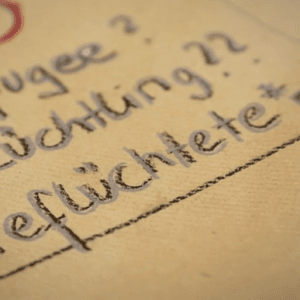 fugee?
lüchtling??
eflüchtete*